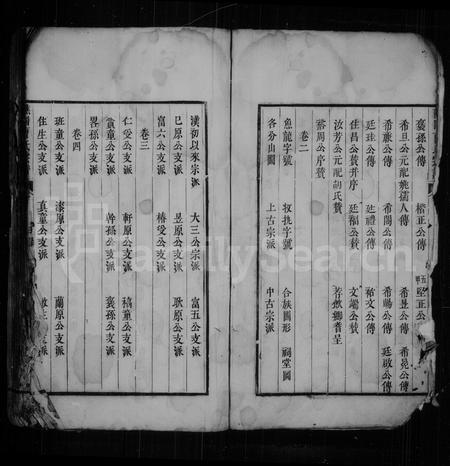 襃孫公傳 楷正公傳 堅正公
希旦公元配姚孺人傳 希昰公傳 希晃公傳
希廉公傳 希閎公傳 希暘公傳 廷啟公傳
廷珪公傳 廷禮公傳 佑文公傳
佳昌公贊并序 廷福公贊 文端公贊
汝芳公元配胡氏贊 若歟鄉耆呈
蔡周公序贊
卷二
魚龍字號 杈批字號 合族圖形 祠堂圖
各分山圖 上古宗派 中古宗派
漢初以來宗派 大三公宗派 富五公支派
巳原公支派 昱原公支派 歌原公支派
富六公支派 椿受公支派
卷三
仁受公支派 軒原公支派 積童公支派
貢童公支派 幹孫公支派 襃孫公支派
畧孫公支派
卷四
班童公支派 漆原公支派 蘭原公支派
住生公支派 真童公支派 公支派
FamilySearch